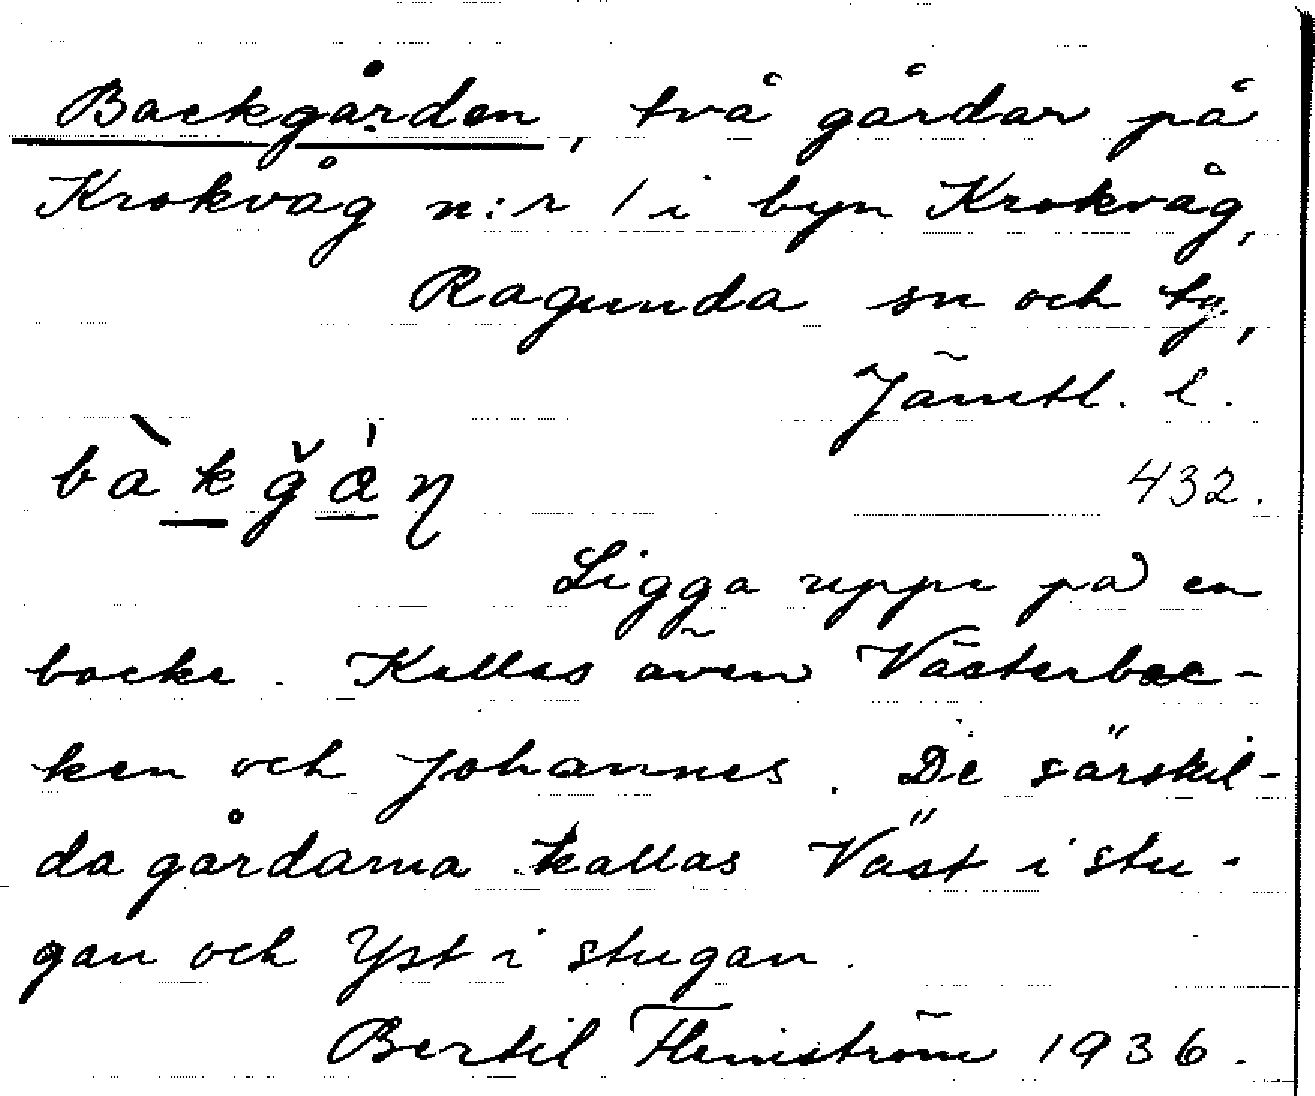 Backgården, två gårdar på
Krokvåg n:r 1 i byn Krokvåg,
Ragunda sn och tg,
Jämtl. l.
432.
Ligga uppe på en
backe. Kallas även Västerbac-
ken och Johannes. De särskil-
da gårdarna kallas Väst i stu-
gan och Yst i stugan.
Bertil Flemström 1936.